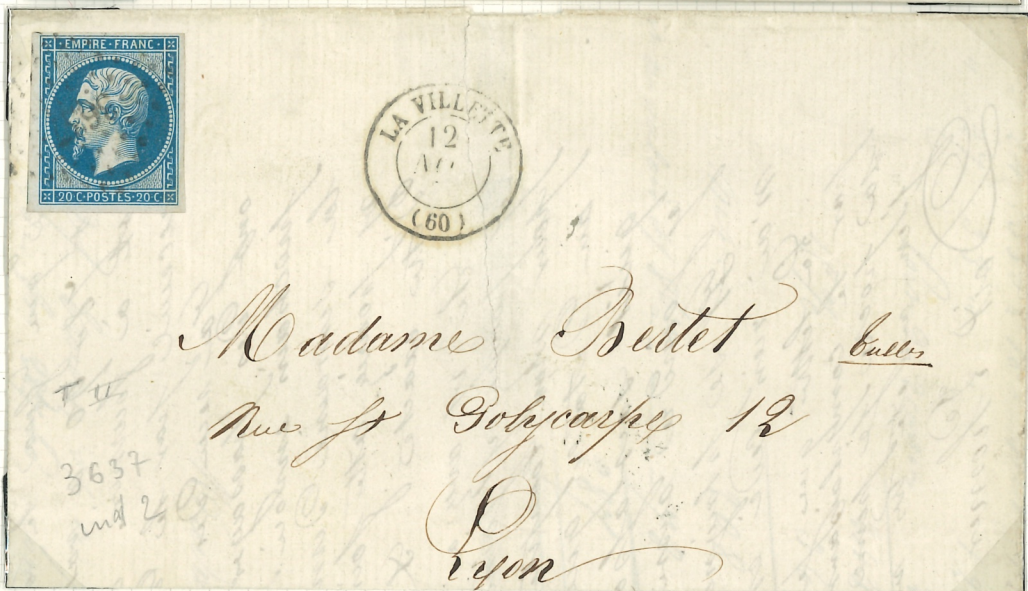 EMPIRE FRANC
20 C POSTES 20 C
LA VILLETTE
12
AO
(60)
Madame Bertet
Tulles
Rue St Polycarpe 12
T II
3637
ind 2
Lyon